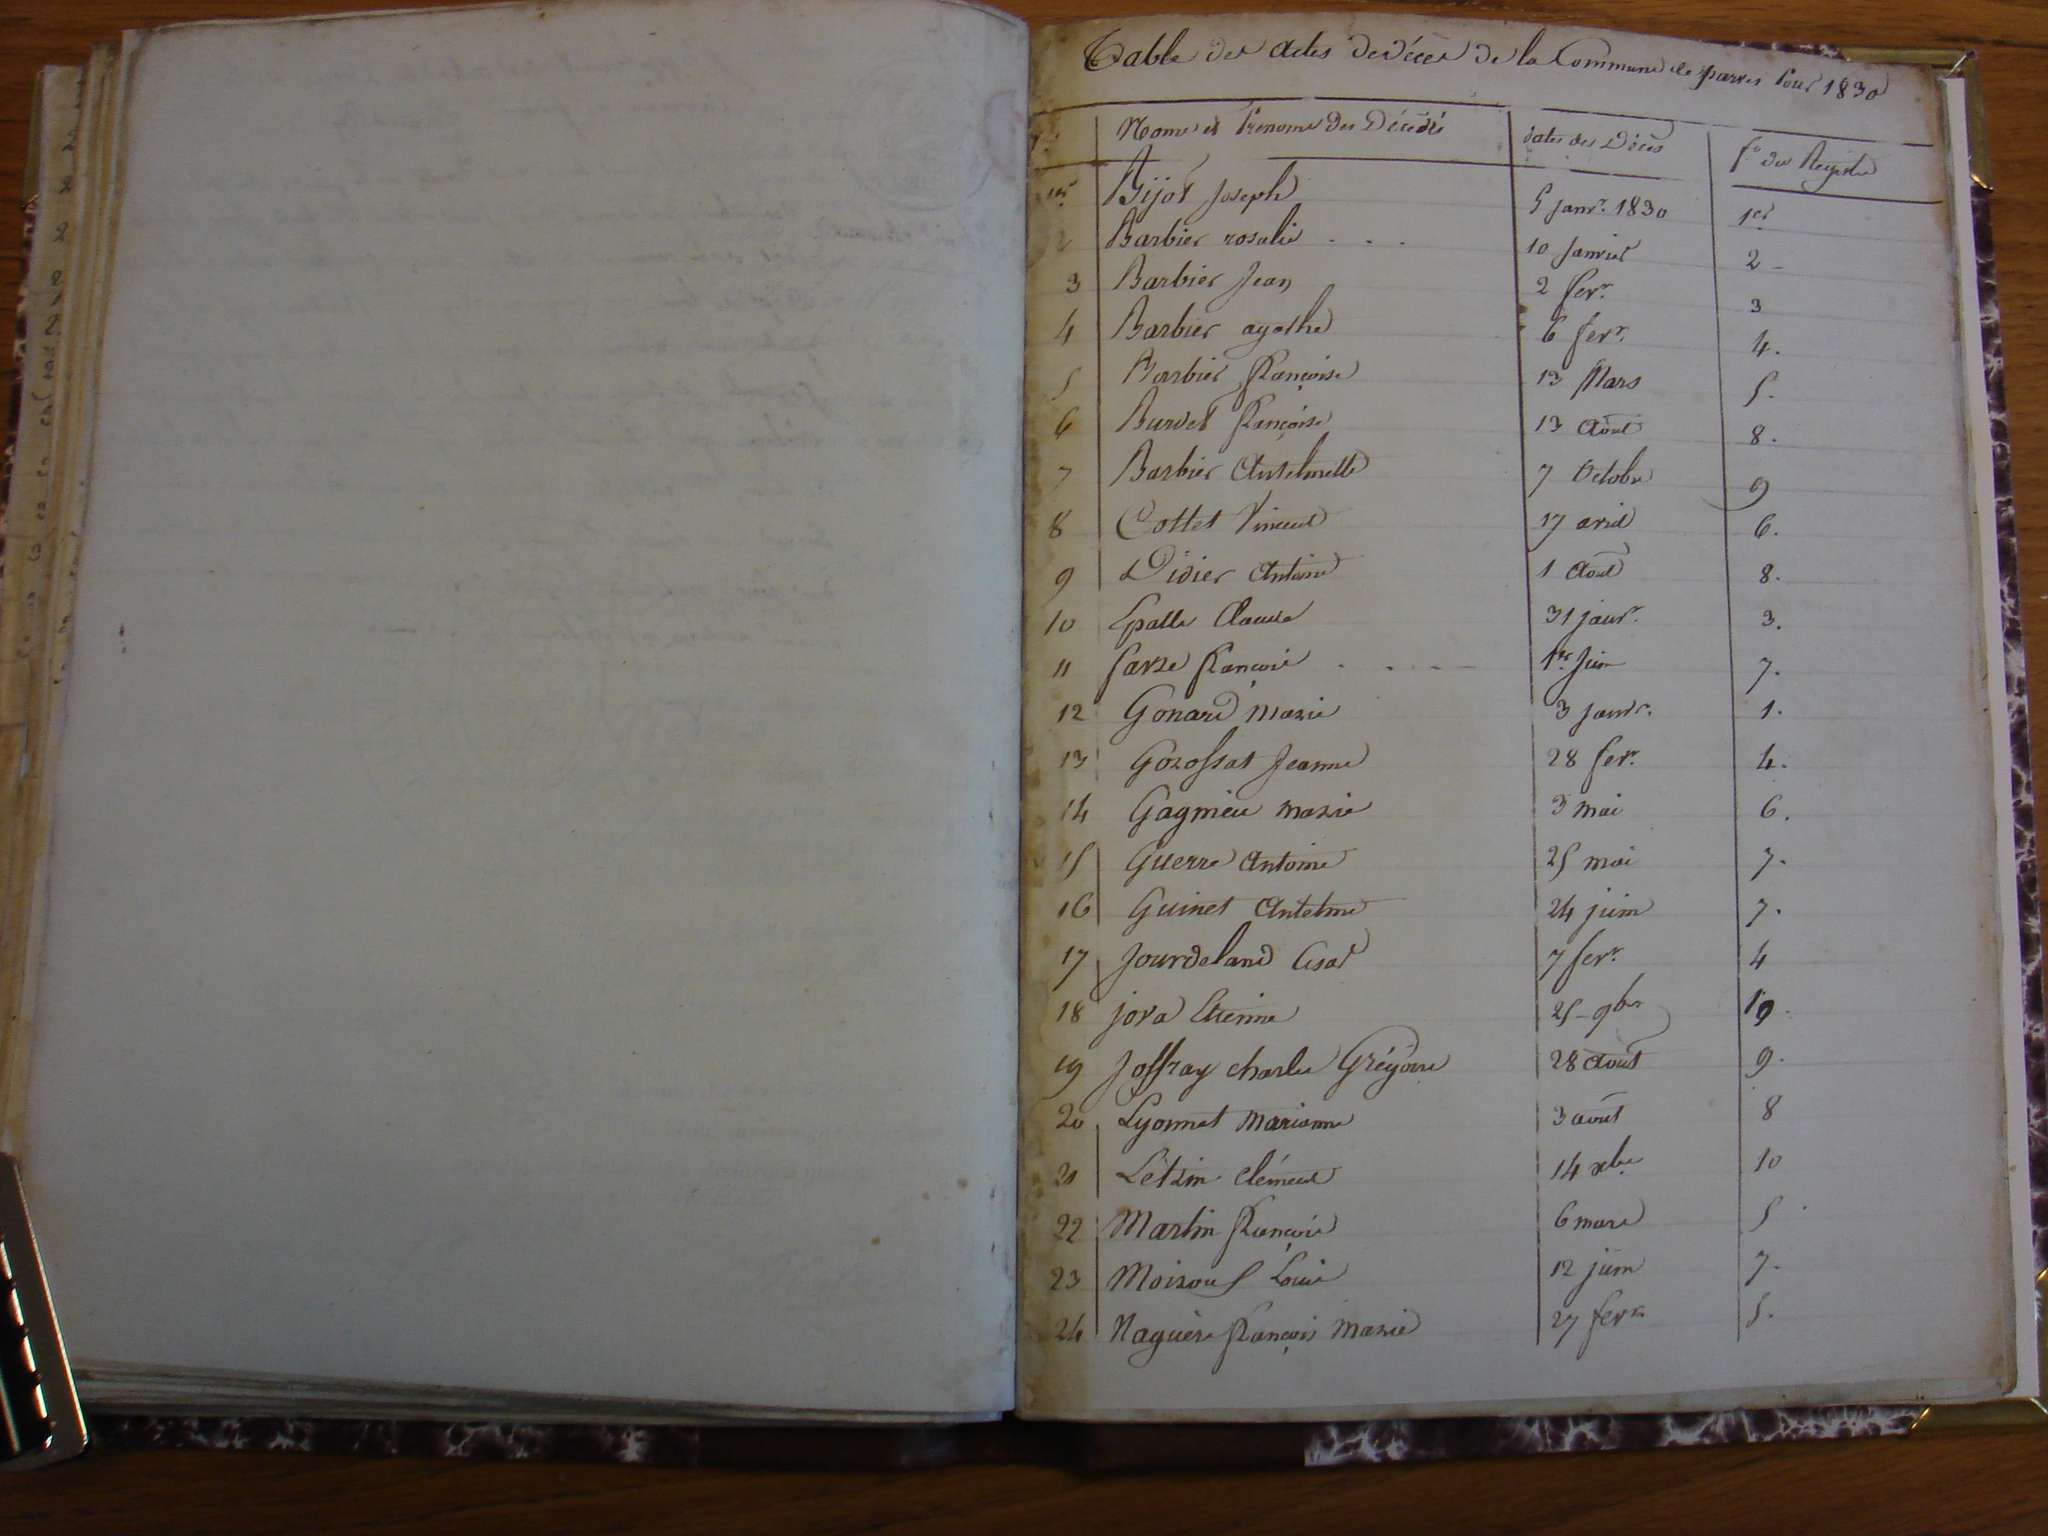 Table des actes de décès de la Commune de parves Pour 1830
Noms et Prenoms des Décédés dates des Décès f.o du Registre
1er Bijot Joseph 5 janvr. 1830 1er
2 Barbier rosalie 10 Janvier 2
3 Barbier Jean 2 fevr. 3
4 Barbier agathe 6 fevr. 4.
5 Barbier françoise 13 Mars 5.
6 Burdet françoise 13 Août 8.
7 Barbier Anthelmette 7 Octobre 9
8 Cottet Vincent 17 avril 6.
9 Didier Antoine 1 Août 8.
10 Epalle Claude 31 janvr. 3.
11 farse françois 1er Juin 7.
12 Gonard Marie 3 janvr. 1.
13 Goroffat Jeanne 28 fevr. 4.
14 Gagnieu marie 3 mai 6.
15 Guerre Antoine 25 mai 7.
16 Guinet Antelme 24 juin 7.
17 Jourdeland César 7 fevr. 4
18 jora Etienne 25 9bre 10.
19 Joffray charles Grégoire 28 Août 9.
20 Lyonnet Marianne 3 août 8
21 Létrin Clément 14 xbre 10
22 Martin françois 6 mars 5
23 Louis 12 juin 7.
24 Naguère françois Marie 27 fevr. 5.